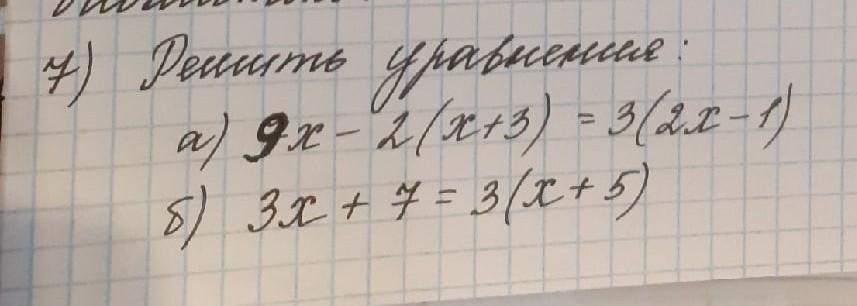 7) Решить уравнение:
а) 9x - 2(x+3) = 3(2x-1)
б) 3x + 7 = 3(x+5)